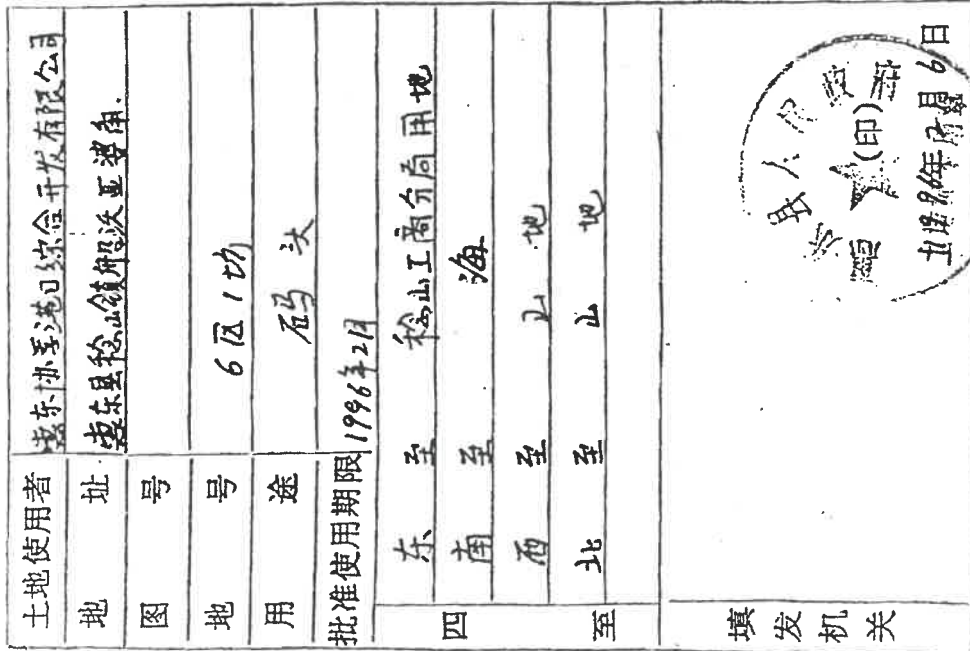 土地使用者 惠东协孚港口综合开发有限公司
地址 惠东县稔山镇船沃亚婆角.
图号
地号 6区1坊
用途 码头
批准使用期限 1996年2月
四至
东至 稔山工商分局用地
南至 海
西至 山地
北至 山地
填发机关
惠东县人民政府
(印)
1996年2月6日